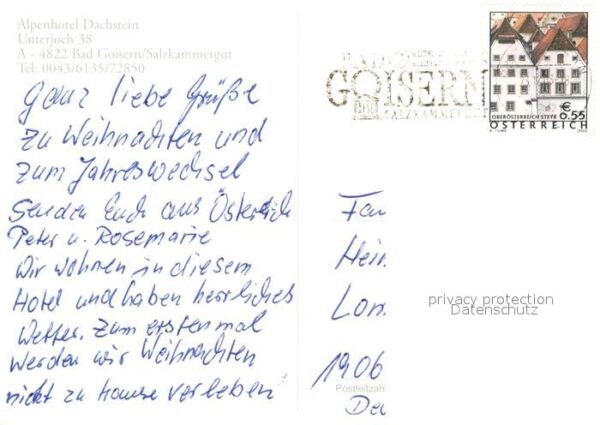 Alpenhotel Dachstein
Unterjoch 38
A - 4822 Bad Goisern/Salzkammergut
Tel: 0043/6135/72850
Ganz liebe Grüße
zu Weihnachten und
zum Jahreswechsel
senden Euch aus Österreich
Peter u. Rosemarie
Wir wohnen in diesem
Hotel und haben herrliches
Wetter. Zum erstenmal
werden wir Weihnachten
nicht zu Hause verleben
BAD
GOISERN
SALZKAMMER
€ 0.55
OBERÖSTERREICH STEYR
ÖSTERREICH
Fam
Hein
Lom
1906
Postleitzahl
De
privacy protection
Datenschutz